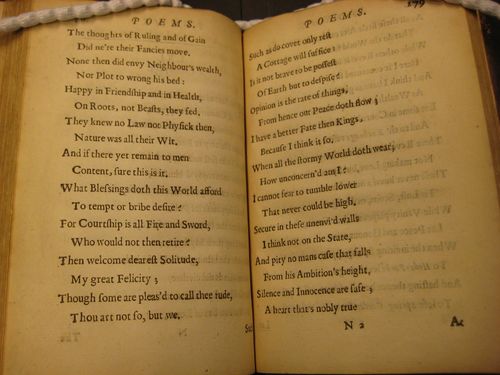 POEMS.
The thoughts of Ruling and of Gain
Did ne're their Fancies move.
None then did envy Neighbour's wealth,
Nor Plot to wrong his bed:
Happy in Friendship and in Health,
On Roots, not Beasts, they fed,
They knew no Law nor Physick then,
Nature was all their Wit.
And if there yet remain to men
Content, sure this is it.
What Blessings doth this World afford
To tempt or bribe desire?
For Courtship is all Fire and Sword,
Who would not then retire?
Then welcome dearest Solitude,
My great Felicity;
Though some are pleas'd to call thee rude,
Thou art not so, but we.
Such
POEMS. 179
Such as do covet only rest
A Cottage will suffice:
Is it not brave to be possest
Of Earth but to despise?
Opinion is the rate of things,
From hence our Peace doth flow;
I have a better Fate then Kings,
Because I think it so.
When all the stormy World doth wear,
How unconcern'd am I?
I cannot fear to tumble lower
That never could be high.
Secure in these unenvi'd walls
I think not on the State,
And pity no mans case that falls
From his Ambition's height,
Silence and Innocence are safe;
A heart that's nobly true
N 2
At